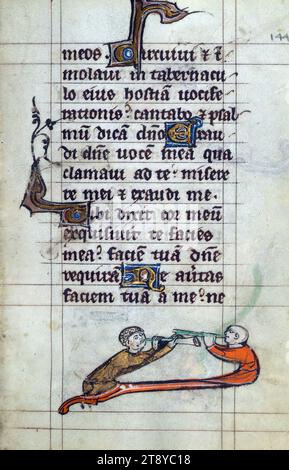 144
meos. Circuiui et i
molaui in tabernacu
lo eius hostiam uocife
rationis: cantabo et psal
mū dicā dño Exau
di dñe uocem meā qua
clamaui ad te: misere
re mei et exaudi me.
Tibi dixit cor meū
exquisiuit te facies
mea: faciem tuā dñe
requirā Ne auertas
faciem tuā a me: ne
alamy
Image ID: 2T8YC18
www.alamy.com